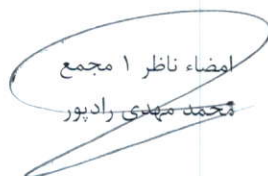 امضاء ناظر ۱ مجمع
محمد مهدی رادپور